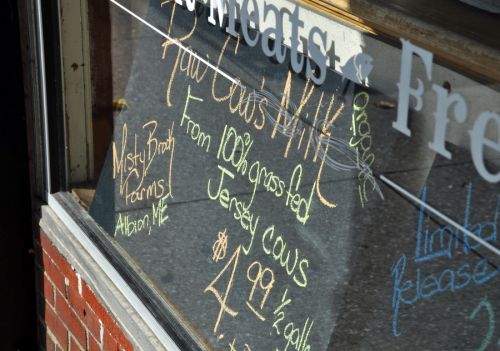 Meats
Fre
Raw Cow's Milk
Misty Brook
Farms
Albion, ME
From 100% grass fed
Jersey cows
$4.99 1/2 gall
Limited
Release